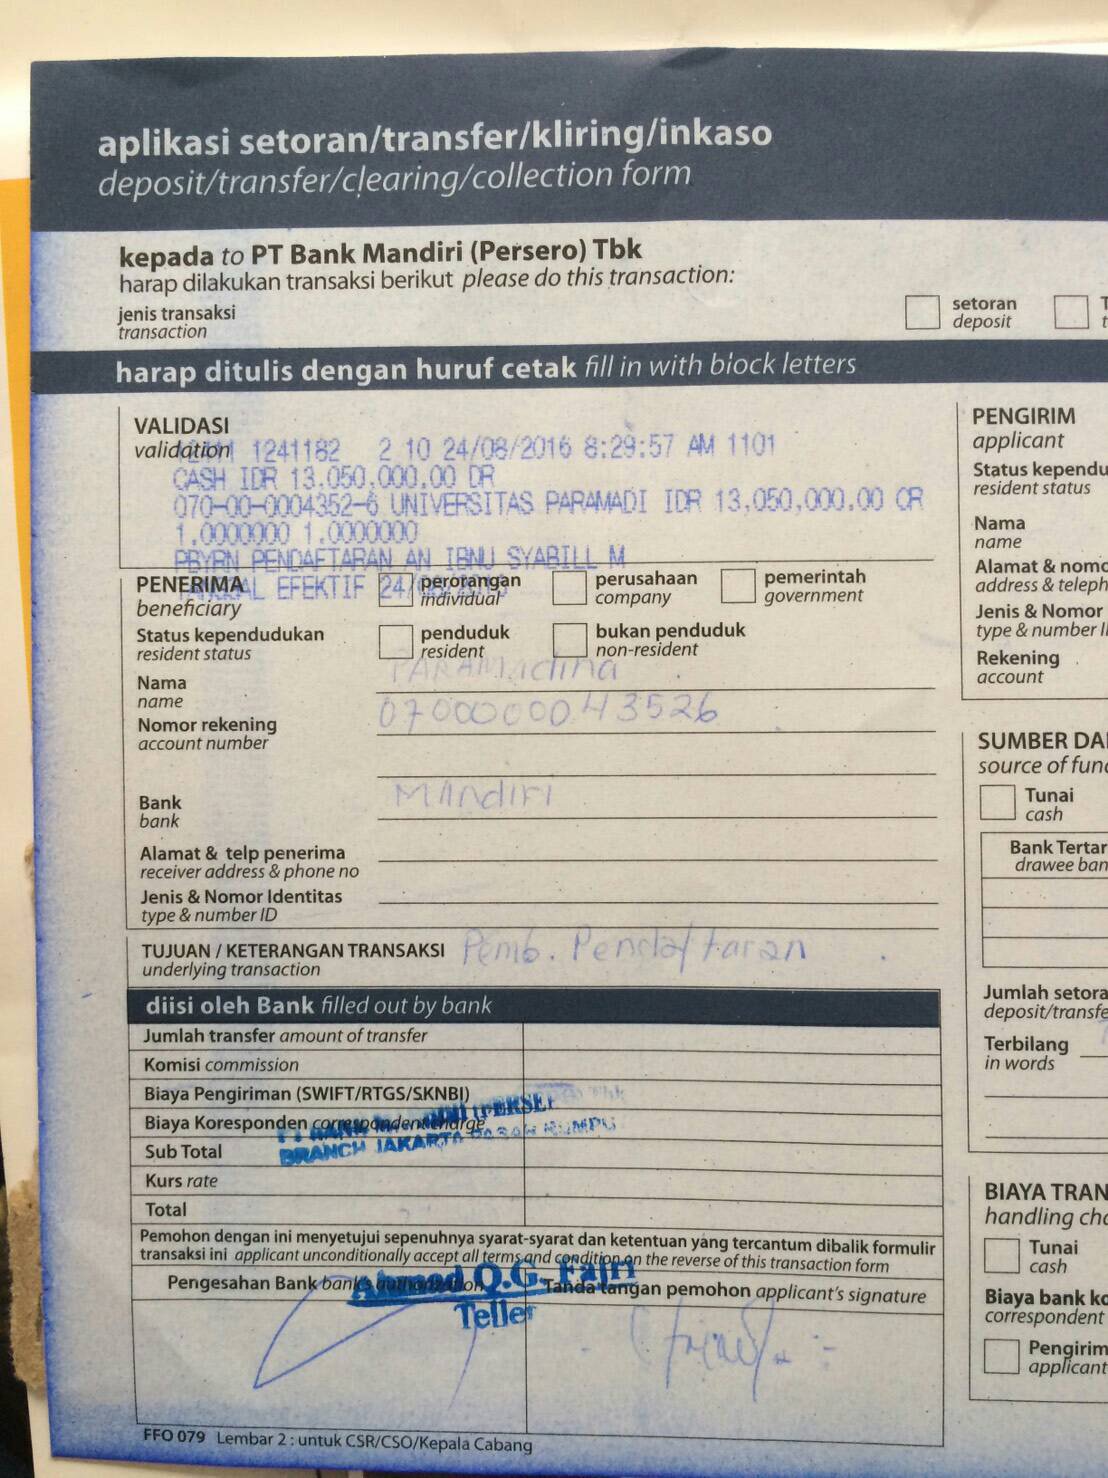 aplikasi setoran/transfer/kliring/inkaso
deposit/transfer/clearing/collection form
kepada to PT Bank Mandiri (Persero) Tbk
harap dilakukan transaksi berikut please do this transaction:
jenis transaksi
transaction
setoran
deposit
harap ditulis dengan huruf cetak fill in with block letters
VALIDASI
validation
1241182 2 10 24/08/2016 8:29:57 AM 1101
CASH IDR 13,050,000.00 DR
070-00-0004352-6 UNIVERSITAS PARAMADI IDR 13,050,000.00 CR
1.0000000 1.0000000
PBYRN PENDAFTARAN AN IBNU SYABILL M
EFEKTIF 24/08/2016
PENERIMA
beneficiary
perorangan
individual
perusahaan
company
pemerintah
government
Status kependudukan
resident status
penduduk
resident
bukan penduduk
non-resident
Nama
name
PARAMAdina
Nomor rekening
account number
0700000043526
Bank
bank
MAndiri
Alamat & telp penerima
receiver address & phone no
Jenis & Nomor Identitas
type & number ID
TUJUAN / KETERANGAN TRANSAKSI
underlying transaction
Pemb. Pendaftaran
diisi oleh Bank filled out by bank
Jumlah transfer amount of transfer
Komisi commission
Biaya Pengiriman (SWIFT/RTGS/SKNBI)
Biaya Koresponden correspondent charge
Sub Total
Kurs rate
Total
PT BANK MANDIRI (PERSE
BRANCH JAKARTA
Pemohon dengan ini menyetujui sepenuhnya syarat-syarat dan ketentuan yang tercantum dibalik formulir
transaksi ini applicant unconditionally accept all terms and condition on the reverse of this transaction form
Pengesahan Bank bank's authorization
Tanda tangan pemohon applicant's signature
Ahmad Q.G. Fajri
Teller
FFO 079 Lembar 2 : untuk CSR/CSO/Kepala Cabang
PENGIRIM
applicant
Status kependu
resident status
Nama
name
Alamat & nomo
address & teleph
Jenis & Nomor
type & number I
Rekening
account
SUMBER DA
source of fun
Tunai
cash
Bank Tertar
drawee ban
Jumlah setora
deposit/transfe
Terbilang
in words
BIAYA TRAN
handling cha
Tunai
cash
Biaya bank ko
correspondent
Pengirim
applicant